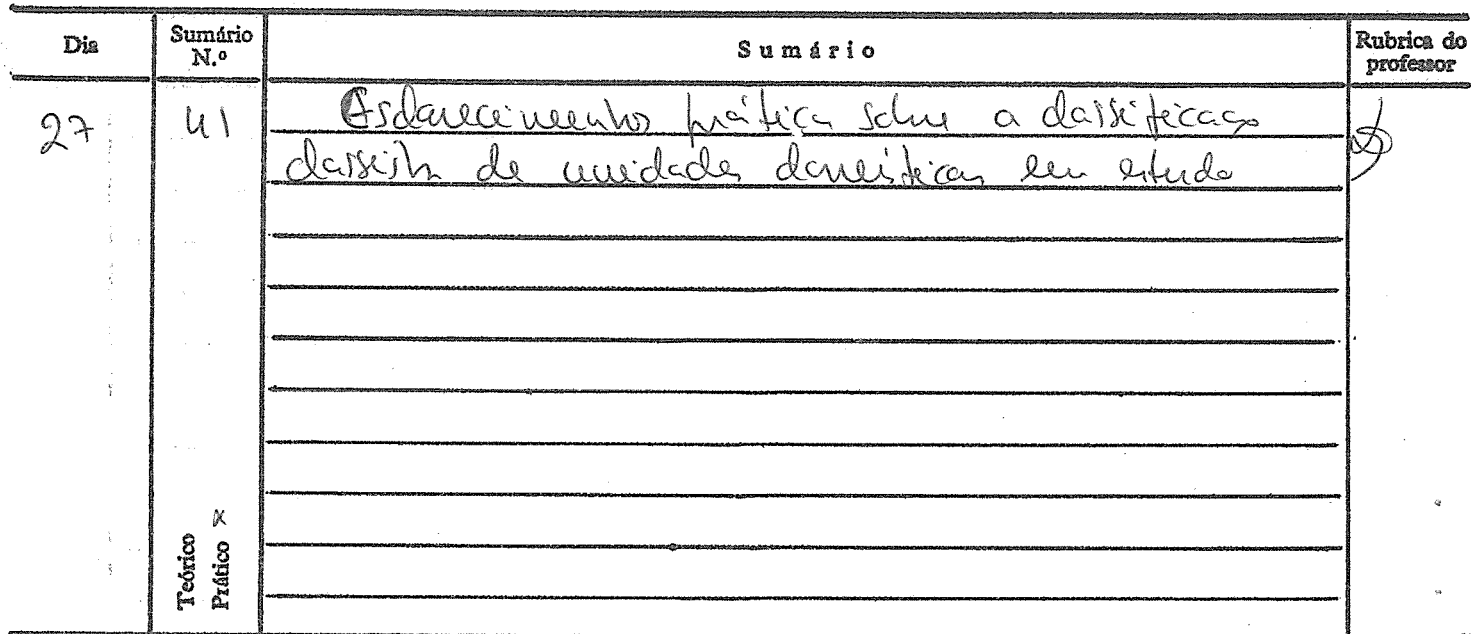 Dia
Sumário N.º
Sumário
Rubrica do professor
27
41
Esclarecimentos prática sobre a classificação
classista de unidades domésticas em estudo
Teórico
Prático x